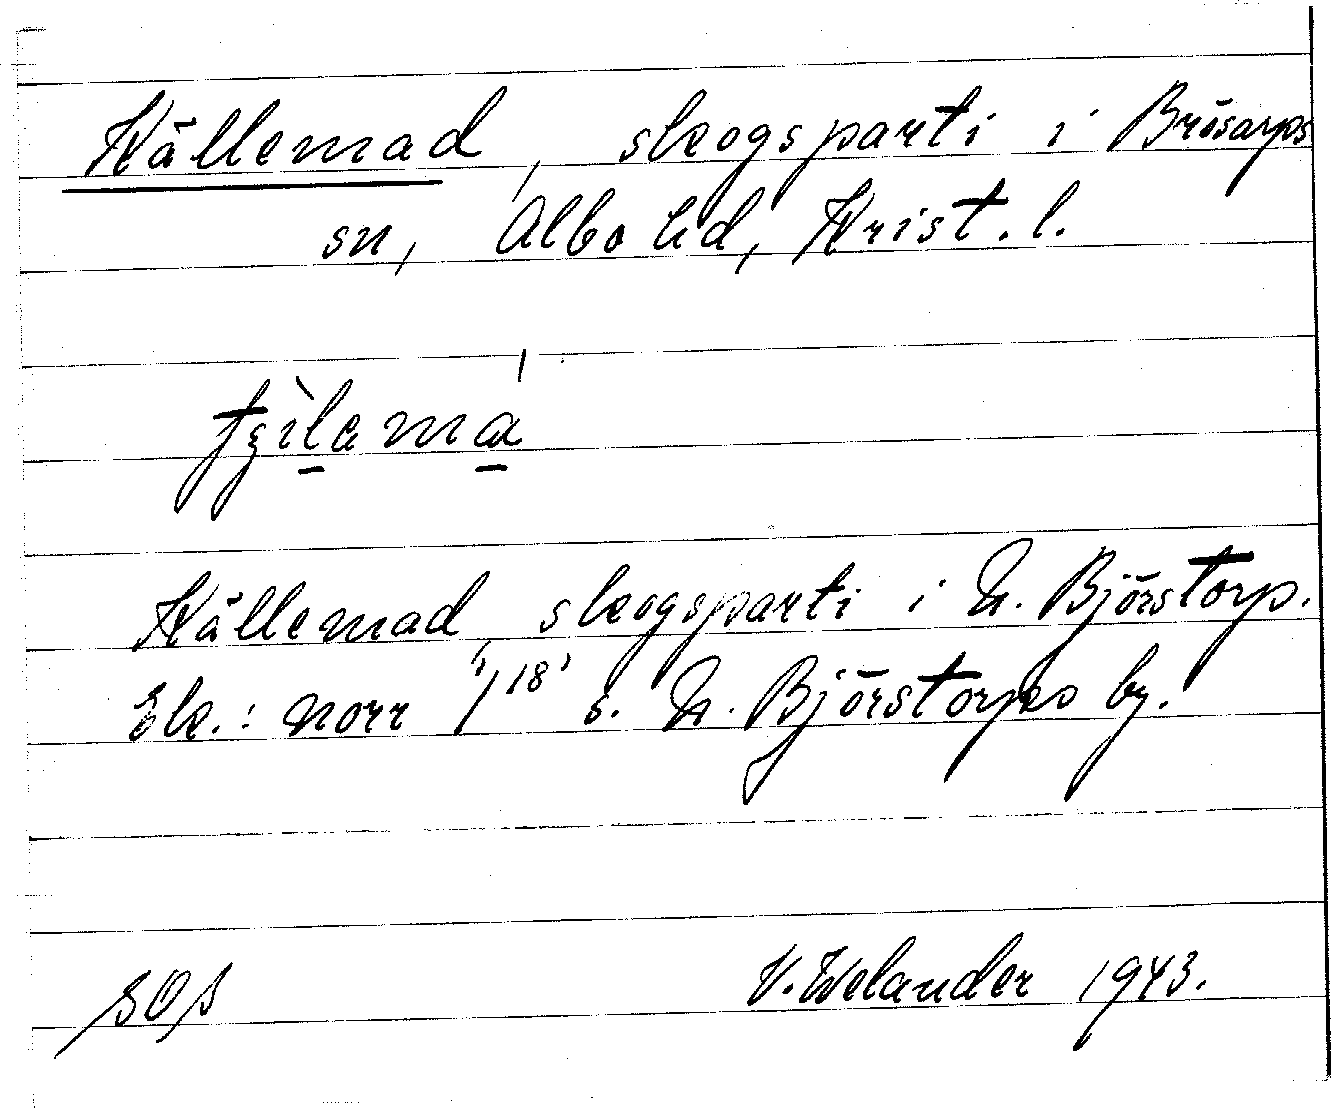 Källemad, skogsparti i Brösarps
sn, Albo hd, Krist. l.
Källemad, skogsparti i N. Björstorp.
Ek.: norr 1/18 s. N. Björstorps by.
SOS V. Welander 1943.